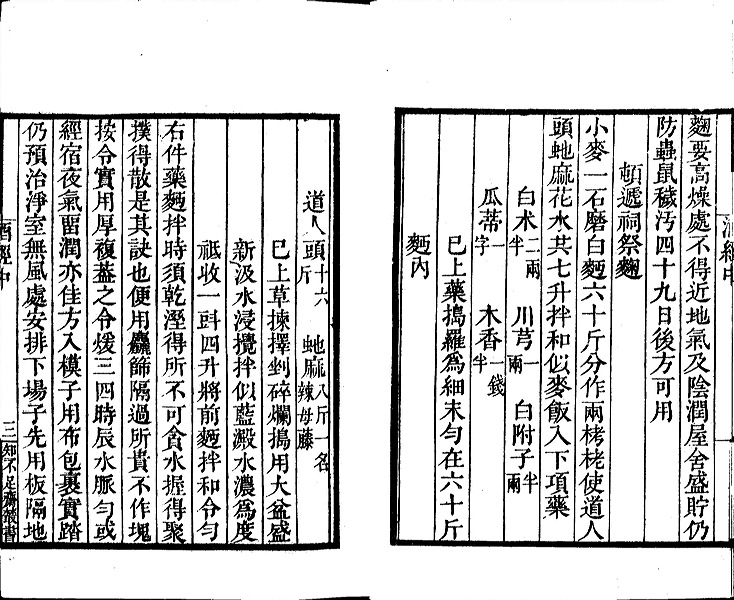 麴要高燥處不得近地氣及陰潤屋舍盛貯仍
防蟲鼠穢汚四十九日後方可用
頓遞祠祭麴
小麥一石磨白麪六十斤分作兩栲栳使道人
頭虵麻花水共七升拌和似麥飯入下項藥
白朮二兩半 川芎一兩 白附子半兩
瓜蒂一字 木香一錢半
已上藥搗羅爲細末勻在六十斤
麪內
道人頭十六斤 虵麻八斤一名辣母藤
已上草揀擇剉碎爛搗用大盆盛
新汲水浸攪拌似藍澱水濃爲度
祗收一㪷四升將前麪拌和令勻
右件藥麪拌時須乾溼得所不可貪水握得聚
撲得散是其訣也便用麤篩隔過所貴不作塊
按令實用厚複葢之令煖三四時辰水脈勻或
經宿夜氣畱潤亦佳方入模子用布包裹實踏
仍預治淨室無風處安排下場子先用板隔地
酒經中 三 知不足齋叢書